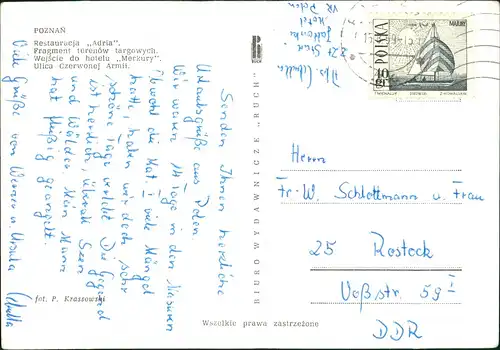 POZNAŃ
Restauracja „Adria".
Fragment terenów targowych.
Wejście do hotelu „Merkury".
Ulica Czerwonej Armii.
fot. P. Krassowski
RUCH
BIURO WYDAWNICZE „RUCH"
Wszelkie prawa zastrzeżone
Senden Ihnen herzliche
Urlaubsgrüße aus Polen.
Wir waren Tage in den Masuren
Obwohl die Kat. I viele Mängel
hatte, haben wir doch sehr
schöne Tage verlebt. Die Gegend
ist herrlich, überall Seen
und Wälder. Mein Mann
hat fleißig geangelt.
Viele Grüße von Werner u. Ursula
Abs.
Hotel
VR Polen
POLSKA
40 GR
Herrn
Fr.-W. Schlottmann u. Frau
25 Rostock
Voßstr. 59 I
DDR